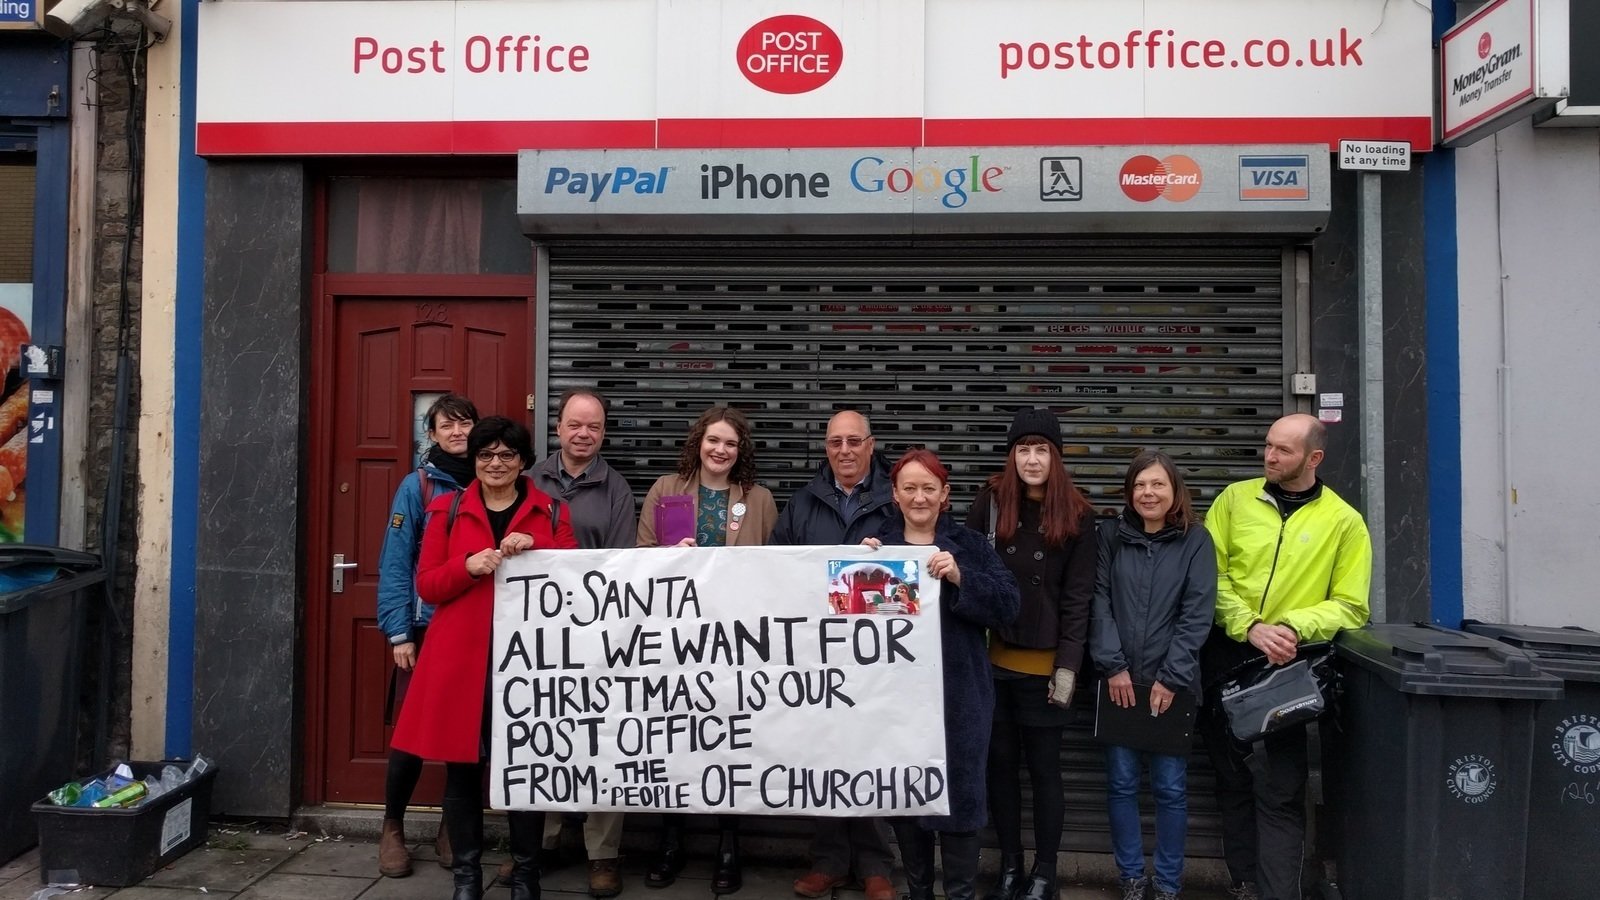 ding
Post Office
POST
OFFICE
postoffice.co.uk
MoneyGram
Money Transfer
No loading
at any time
PayPal
iPhone
Google
MasterCard
VISA
128
OFFICE
1ST
TO: SANTA
ALL WE WANT FOR
CHRISTMAS IS OUR
POST OFFICE
FROM: THE PEOPLE OF CHURCH RD
boardman
BRISTOL
CITY COUNCIL